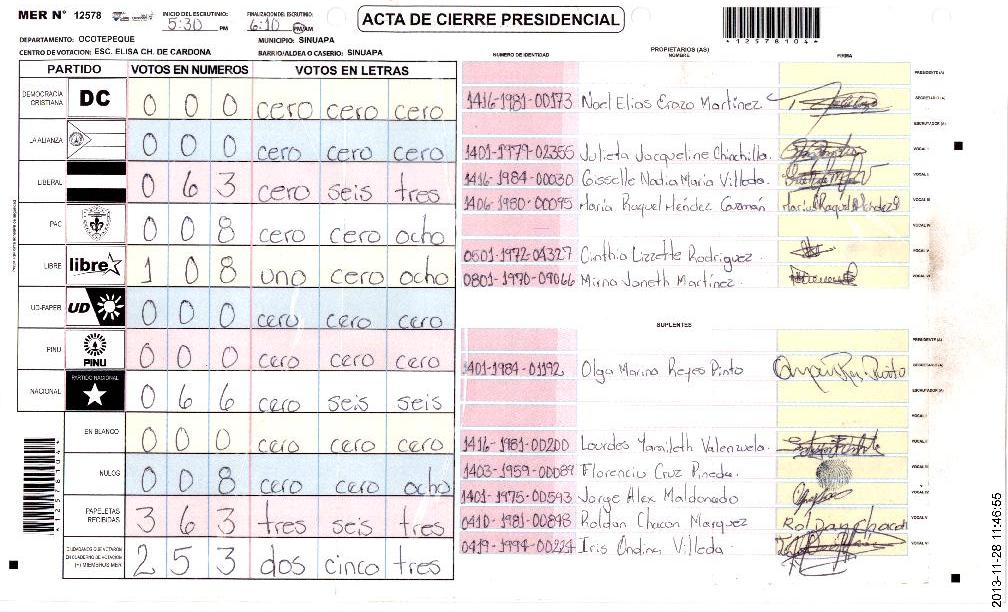 MER N° 12578
INICIO DEL ESCRUTINIO:
5:30 PM
FINALIZACION DEL ESCRUTINIO:
6:10 AM
ACTA DE CIERRE PRESIDENCIAL
*12578104*
DEPARTAMENTO: OCOTEPEQUE
MUNICIPIO: SINUAPA
CENTRO DE VOTACION: ESC. ELISA CH. DE CARDONA
BARRIO/ALDEA O CASERIO: SINUAPA
PARTIDO VOTOS EN NUMEROS VOTOS EN LETRAS
DEMOCRACIA CRISTIANA DC 0 0 0 cero cero cero
LA ALIANZA 0 0 0 cero cero cero
LIBERAL 0 6 3 cero seis tres
PAC 0 0 8 cero cero ocho
LIBRE libre 1 0 8 uno cero ocho
UD-FAPER UD 0 0 0 cero cero cero
PINU PINU 0 0 0 cero cero cero
NACIONAL PARTIDO NACIONAL 0 6 6 cero seis seis
EN BLANCO 0 0 0 cero cero cero
NULOS 0 0 8 cero cero ocho
PAPELETAS RECIBIDAS 3 6 3 tres seis tres
CIUDADANOS QUE VOTARON EN CUADERNO DE VOTACION (+) MIEMBROS MER 2 5 3 dos cinco tres
*12578104*
PROPIETARIOS (AS)
NUMERO DE IDENTIDAD NOMBRE FIRMA
PRESIDENTE (A)
1416-1981-00173 Noel Elias Erazo Martinez SECRETARIO (A)
ESCRUTADOR (A)
1401-1979-02355 Julieta Jacqueline Chinchilla. VOCAL I
1416-1984-00030 Gisselle Nadia Maria Villeda. VOCAL II
1406-1980-00095 María Raquel Méndez Guzmán VOCAL III
VOCAL IV
0501-1972-04327 Cinthia Lizzette Rodriguez. VOCAL V
0801-1970-09066 Mirna Janeth Martínez. VOCAL VI
SUPLENTES
PRESIDENTE (A)
1401-1984-01192 Olga Marina Reyes Pinto SECRETARIO (A)
ESCRUTADOR (A)
VOCAL I
1416-1981-00200 Lourdes Yamileth Valenzuela. VOCAL II
1403-1959-00089 Florencio Cruz Pineda. VOCAL III
1401-1975-00593 Jorge Alex Maldonado VOCAL IV
0410-1981-00898 Roldan Chacon Marquez VOCAL V
0419-1994-00224 Iris Ondina Villeda. VOCAL VI
2013-11-28 11:46:55